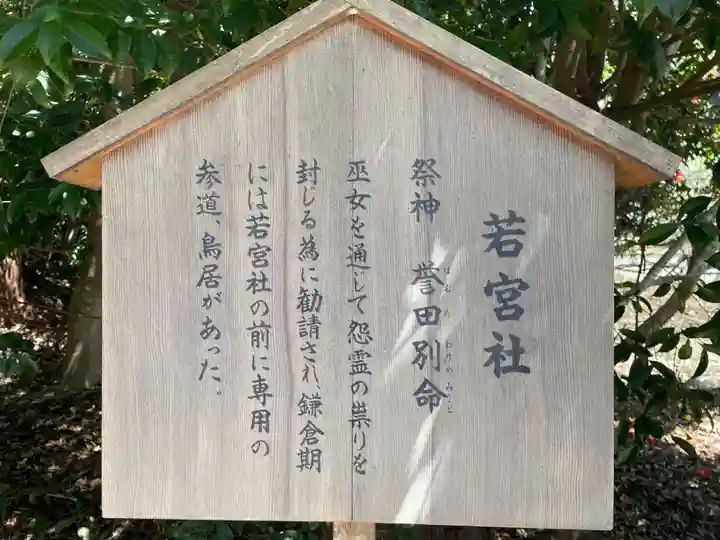 若宮社
祭神 誉田別命
ほむたわけのみこと
巫女を通じて怨霊の祟りを
封じる為に勧請され、鎌倉期
には若宮社の前に専用の
参道、鳥居があった。